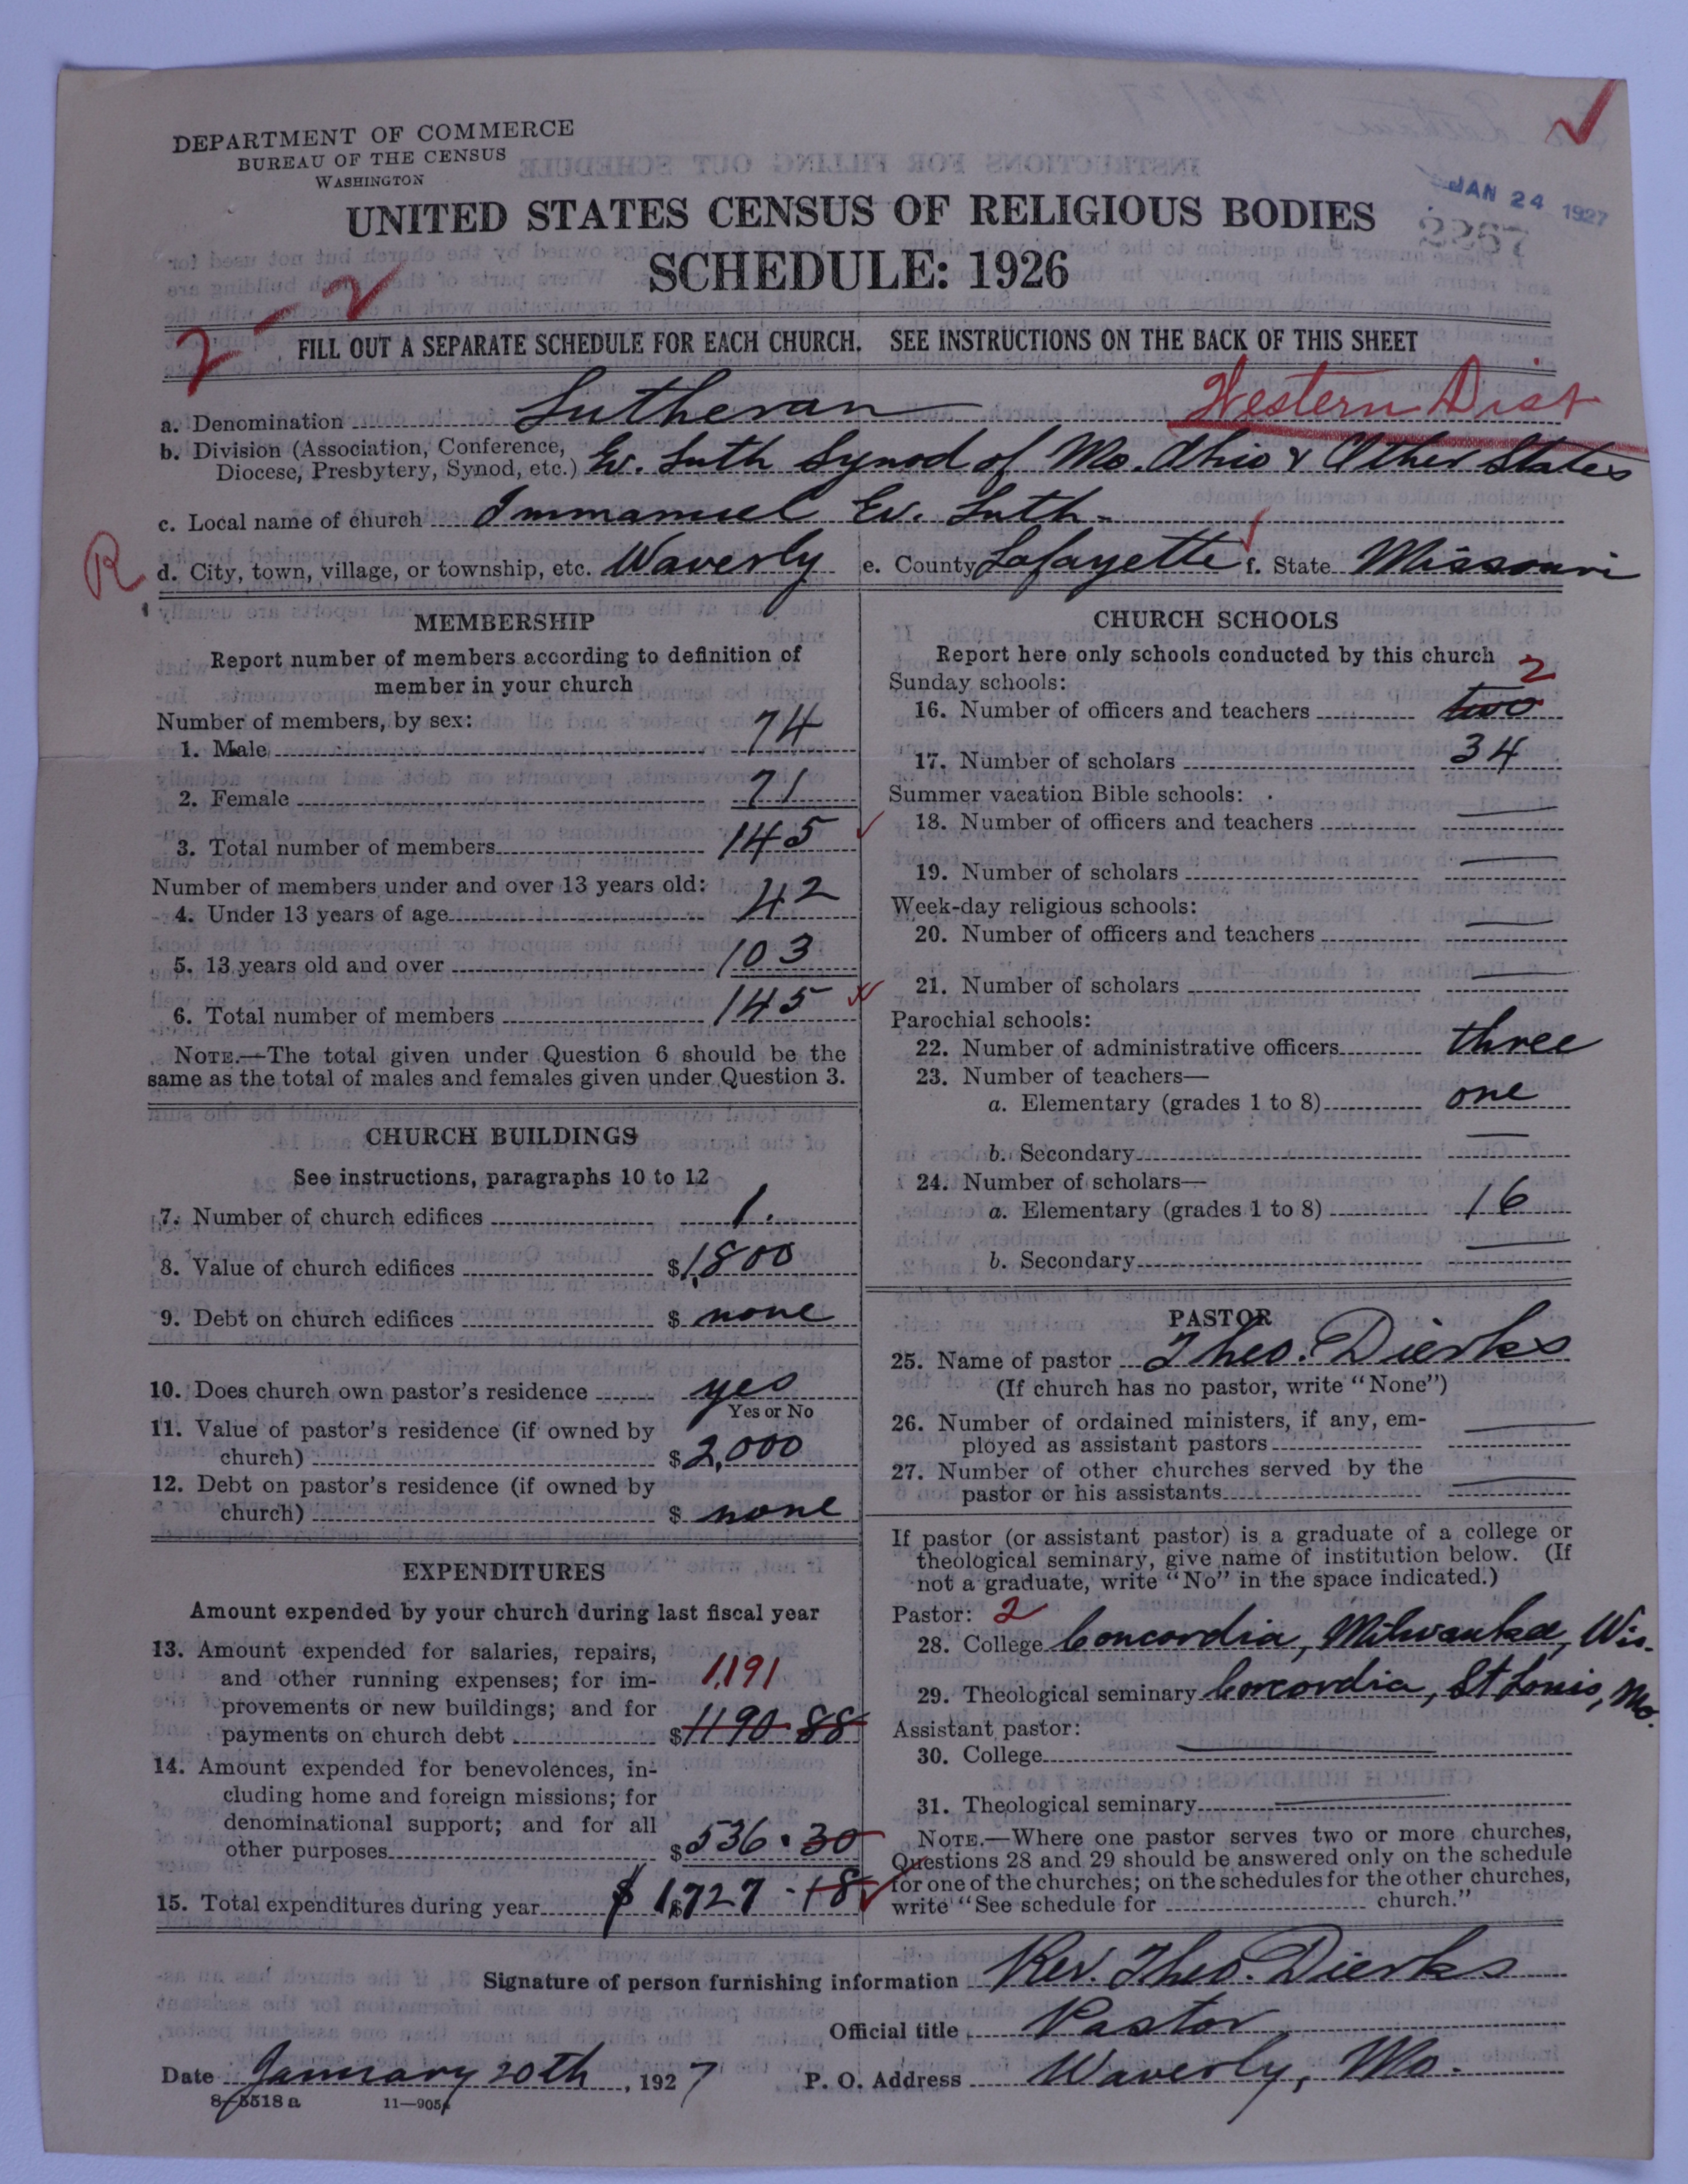 DEPARTMENT OF COMMERCE
BUREAU OF THE CENSUS
WASHINGTON
JAN 24 1927
2267
UNITED STATES CENSUS OF RELIGIOUS BODIES
SCHEDULE: 1926
2-2
FILL OUT A SEPARATE SCHEDULE FOR EACH CHURCH. SEE INSTRUCTIONS ON THE BACK OF THIS SHEET
Western Dist
a. Denomination Lutheran
b. Division (Association, Conference,
Diocese, Presbytery, Synod, etc.) Ev. Luth Synod of Mo. Ohio & Other States
c. Local name of church Immanuel Ev. Luth.
R d. City, town, village, or township, etc. Waverly e. County Lafayette f. State Missouri
MEMBERSHIP
Report number of members according to definition of
member in your church
Number of members, by sex:
1. Male 74
2. Female 71
3. Total number of members 145
Number of members under and over 13 years old:
4. Under 13 years of age 42
5. 13 years old and over 103
6. Total number of members 145
NOTE.—The total given under Question 6 should be the
same as the total of males and females given under Question 3.
CHURCH BUILDINGS
See instructions, paragraphs 10 to 12
7. Number of church edifices 1.
8. Value of church edifices $1,800
9. Debt on church edifices $ none
10. Does church own pastor's residence yes
Yes or No
11. Value of pastor's residence (if owned by
church) $2,000
12. Debt on pastor's residence (if owned by
church) $ none
EXPENDITURES
Amount expended by your church during last fiscal year
13. Amount expended for salaries, repairs,
and other running expenses; for im- 1,191
provements or new buildings; and for
payments on church debt $1190.88
14. Amount expended for benevolences, in-
cluding home and foreign missions; for
denominational support; and for all
other purposes $536.30
15. Total expenditures during year $ 1,727.18
CHURCH SCHOOLS
Report here only schools conducted by this church
Sunday schools: 2
16. Number of officers and teachers two
17. Number of scholars 34
Summer vacation Bible schools:
18. Number of officers and teachers —
19. Number of scholars —
Week-day religious schools:
20. Number of officers and teachers —
21. Number of scholars —
Parochial schools:
22. Number of administrative officers three
23. Number of teachers—
a. Elementary (grades 1 to 8) one
b. Secondary —
24. Number of scholars—
a. Elementary (grades 1 to 8) 16
b. Secondary —
PASTOR
25. Name of pastor Theo. Dierks
(If church has no pastor, write "None")
26. Number of ordained ministers, if any, em-
ployed as assistant pastors —
27. Number of other churches served by the
pastor or his assistants —
If pastor (or assistant pastor) is a graduate of a college or
theological seminary, give name of institution below. (If
not a graduate, write "No" in the space indicated.)
Pastor: 2
28. College Concordia, Milwaukee, Wis.
29. Theological seminary Concordia, St Louis, Mo.
Assistant pastor:
30. College —
31. Theological seminary —
NOTE.—Where one pastor serves two or more churches,
Questions 28 and 29 should be answered only on the schedule
for one of the churches; on the schedules for the other churches,
write "See schedule for church."
Signature of person furnishing information Rev. Theo. Dierks
Official title Pastor
Date January 20th, 1927 P. O. Address Waverly, Mo.
8-5518 a 11-9054